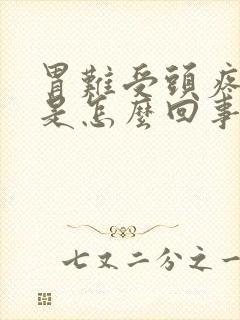 胃難受頭疼
是怎麼回事
七又二分之一